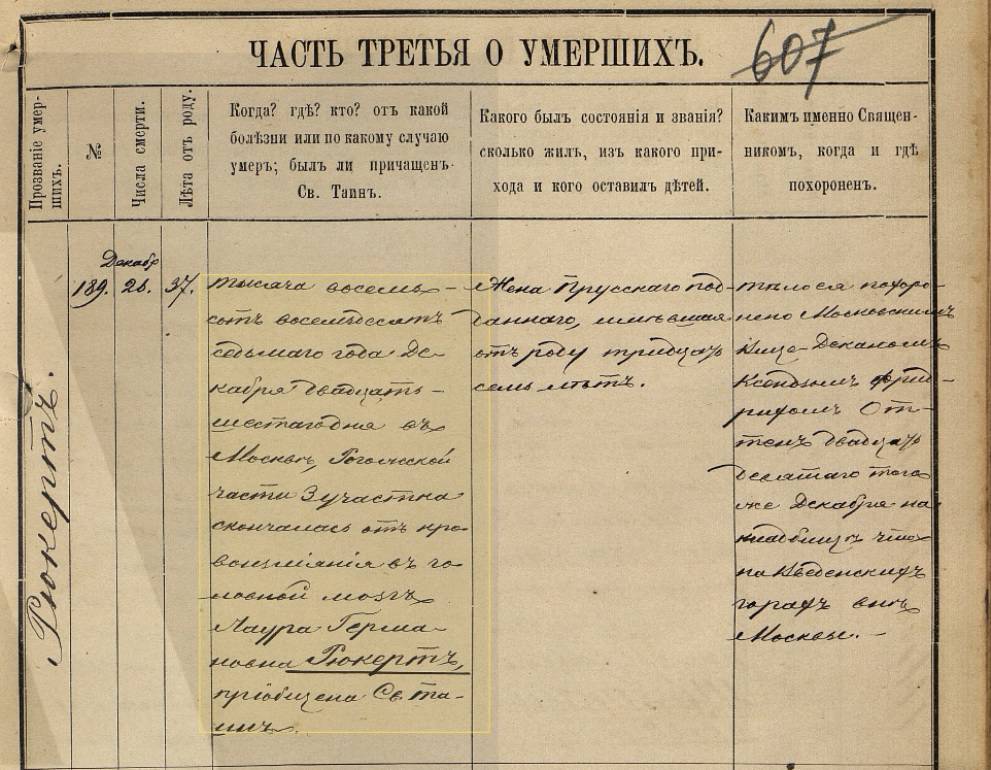 ЧАСТЬ ТРЕТЬЯ О УМЕРШИХЪ.
607
Прозваніе умер-
шихъ.
№
Числа смерти.
Лѣта отъ роду.
Когда? гдѣ? кто? отъ какой
болѣзни или по какому случаю
умеръ; былъ ли причащенъ
Св. Таинъ.
Какого былъ состоянія и званія?
сколько жилъ, изъ какого при-
хода и кого оставилъ дѣтей.
Какимъ именно Священ-
никомъ, когда и гдѣ
похороненъ.
Рюкертъ.
189.
Декабр
26.
37.
тысяча восемь-
сотъ восемьдесятъ
седьмаго года Де-
кабря двадцать-
шестаго дня въ
Москвѣ, Рогожской
части 3 участка
скончалась отъ кро-
воизліянія въ го-
ловной мозгъ
Лаура Герма-
новна Рюкертъ,
пріобщена Св. Та-
инъ.
Жена Прусскаго под-
даннаго, имѣвшая
отъ роду тридцать
семь лѣтъ.
тѣло ея похоро-
нено Московскимъ
Вице-Деканомъ
Ксендзомъ Фрид-
рихомъ От-
тенъ двадцать
девятаго того
же Декабря на
кладбищѣ что
на Введенскихъ
горахъ внѣ
Москвы.-